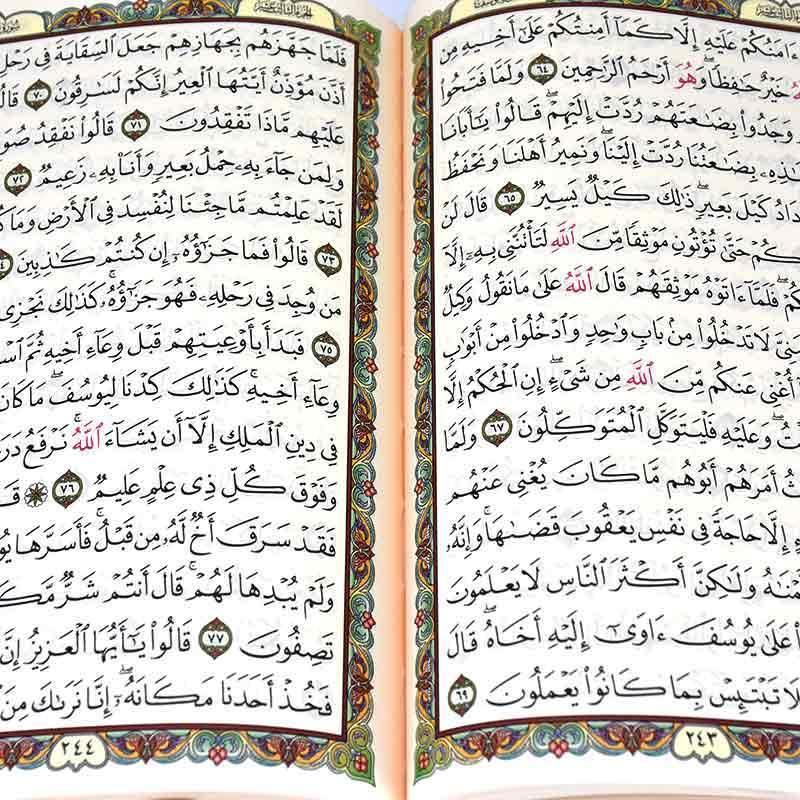 ءَامَنُكُمْ عَلَيْهِ إِلَّا كَمَآ أَمِنتُكُمْ عَلَىٰٓ أَخِيهِ مِن
خَيْرٌ حَٰفِظًا ۖ وَهُوَ أَرْحَمُ ٱلرَّٰحِمِينَ ٦٤ وَلَمَّا فَتَحُوا۟
وَجَدُوا۟ بِضَٰعَتَهُمْ رُدَّتْ إِلَيْهِمْ ۖ قَالُوا۟ يَٰٓأَبَانَا
بِضَٰعَتُنَا رُدَّتْ إِلَيْنَا ۖ وَنَمِيرُ أَهْلَنَا وَنَحْفَظُ
كَيْلَ بَعِيرٍ ۖ ذَٰلِكَ كَيْلٌ يَسِيرٌ ٦٥ قَالَ لَنْ
حَتَّىٰ تُؤْتُونِ مَوْثِقًا مِّنَ ٱللَّهِ لَتَأْتُنَّنِى بِهِۦٓ إِلَّآ
فَلَمَّآ ءَاتَوْهُ مَوْثِقَهُمْ قَالَ ٱللَّهُ عَلَىٰ مَا نَقُولُ وَكِيلٌ
لَا تَدْخُلُوا۟ مِنۢ بَابٍ وَٰحِدٍ وَٱدْخُلُوا۟ مِنْ أَبْوَٰبٍ
أُغْنِى عَنكُم مِّنَ ٱللَّهِ مِن شَىْءٍ ۖ إِنِ ٱلْحُكْمُ إِلَّا
وَعَلَيْهِ فَلْيَتَوَكَّلِ ٱلْمُتَوَكِّلُونَ ٦٧ وَلَمَّا
أَمَرَهُمْ أَبُوهُم مَّا كَانَ يُغْنِى عَنْهُم
إِلَّا حَاجَةً فِى نَفْسِ يَعْقُوبَ قَضَىٰهَا ۚ وَإِنَّهُۥ
وَلَٰكِنَّ أَكْثَرَ ٱلنَّاسِ لَا يَعْلَمُونَ
عَلَىٰ يُوسُفَ ءَاوَىٰٓ إِلَيْهِ أَخَاهُ ۖ قَالَ
تَبْتَئِسْ بِمَا كَانُوا۟ يَعْمَلُونَ ٦٩
٢٤٣
فَلَمَّا جَهَّزَهُم بِجَهَازِهِمْ جَعَلَ ٱلسِّقَايَةَ فِى رَحْلِ
أَذَّنَ مُؤَذِّنٌ أَيَّتُهَا ٱلْعِيرُ إِنَّكُمْ لَسَٰرِقُونَ ٧٠
عَلَيْهِم مَّاذَا تَفْقِدُونَ ٧١ قَالُوا۟ نَفْقِدُ
وَلِمَن جَآءَ بِهِۦ حِمْلُ بَعِيرٍ وَأَنَا۠ بِهِۦ زَعِيمٌ ٧٢
لَقَدْ عَلِمْتُم مَّا جِئْنَا لِنُفْسِدَ فِى ٱلْأَرْضِ وَمَا
٧٣ قَالُوا۟ فَمَا جَزَٰٓؤُهُۥٓ إِن كُنتُمْ كَٰذِبِينَ
مَن وُجِدَ فِى رَحْلِهِۦ فَهُوَ جَزَٰٓؤُهُۥ ۚ كَذَٰلِكَ نَجْزِى
٧٥ فَبَدَأَ بِأَوْعِيَتِهِمْ قَبْلَ وِعَآءِ أَخِيهِ ثُمَّ
وِعَآءِ أَخِيهِ ۚ كَذَٰلِكَ كِدْنَا لِيُوسُفَ ۖ مَا كَانَ
فِى دِينِ ٱلْمَلِكِ إِلَّآ أَن يَشَآءَ ٱللَّهُ ۚ نَرْفَعُ
وَفَوْقَ كُلِّ ذِى عِلْمٍ عَلِيمٌ ٧٦
فَقَدْ سَرَقَ أَخٌ لَّهُۥ مِن قَبْلُ ۚ فَأَسَرَّهَا
وَلَمْ يُبْدِهَا لَهُمْ ۚ قَالَ أَنتُمْ شَرٌّ
تَصِفُونَ ٧٧ قَالُوا۟ يَٰٓأَيُّهَا ٱلْعَزِيزُ إِنَّ
فَخُذْ أَحَدَنَا مَكَانَهُۥٓ ۖ إِنَّا نَرَىٰكَ مِنَ
٢٤٤